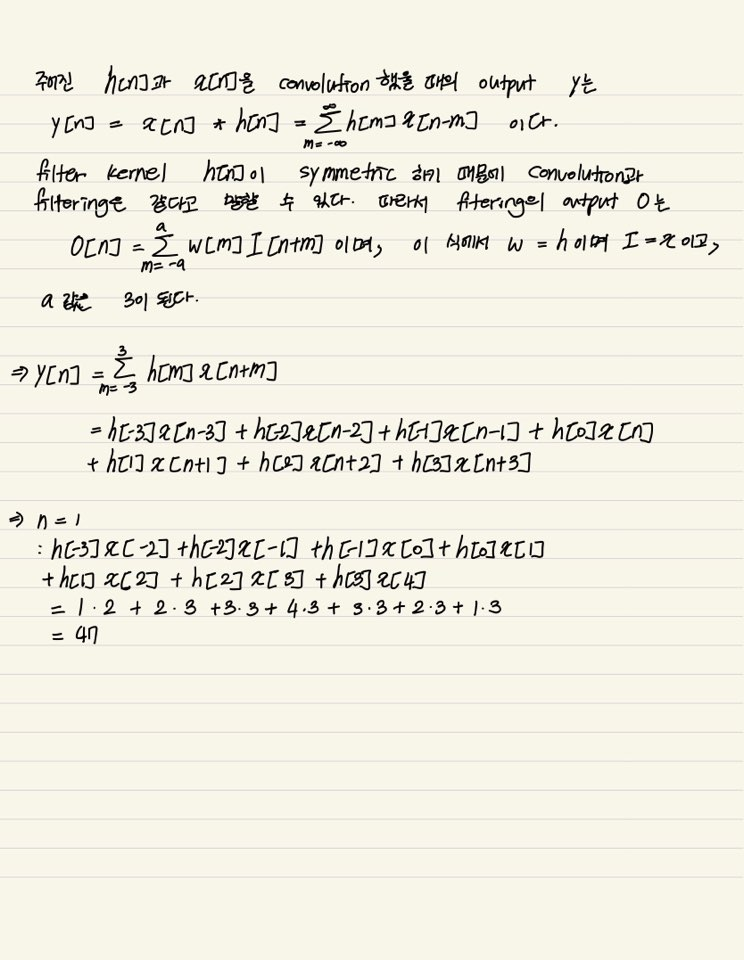 주어진 h[n]과 x[n]을 convolution 했을 때의 output y는
y[n] = x[n] * h[n] = ∑_{m=-∞}^{∞} h[m] x[n-m] 이다.
filter kernel h[n]이 symmetric 하기 때문에 convolution과
filtering은 같다고 말할 수 있다. 따라서 filtering의 output O는
O[n] = ∑_{m=-a}^{a} w[m] I[n+m] 이며, 이 식에서 w = h 이며 I = x 이고,
a 값은 3이 된다.
⇒ y[n] = ∑_{m=-3}^{3} h[m] x[n+m]
= h[-3]x[n-3] + h[-2]x[n-2] + h[-1]x[n-1] + h[0]x[n]
+ h[1] x[n+1] + h[2] x[n+2] + h[3]x[n+3]
⇒ n = 1
: h[-3]x[-2] + h[-2]x[-1] + h[-1]x[0] + h[0]x[1]
+ h[1] x[2] + h[2] x[3] + h[3]x[4]
= 1·2 + 2·3 + 3·3 + 4·3 + 3·3 + 2·3 + 1·3
= 47